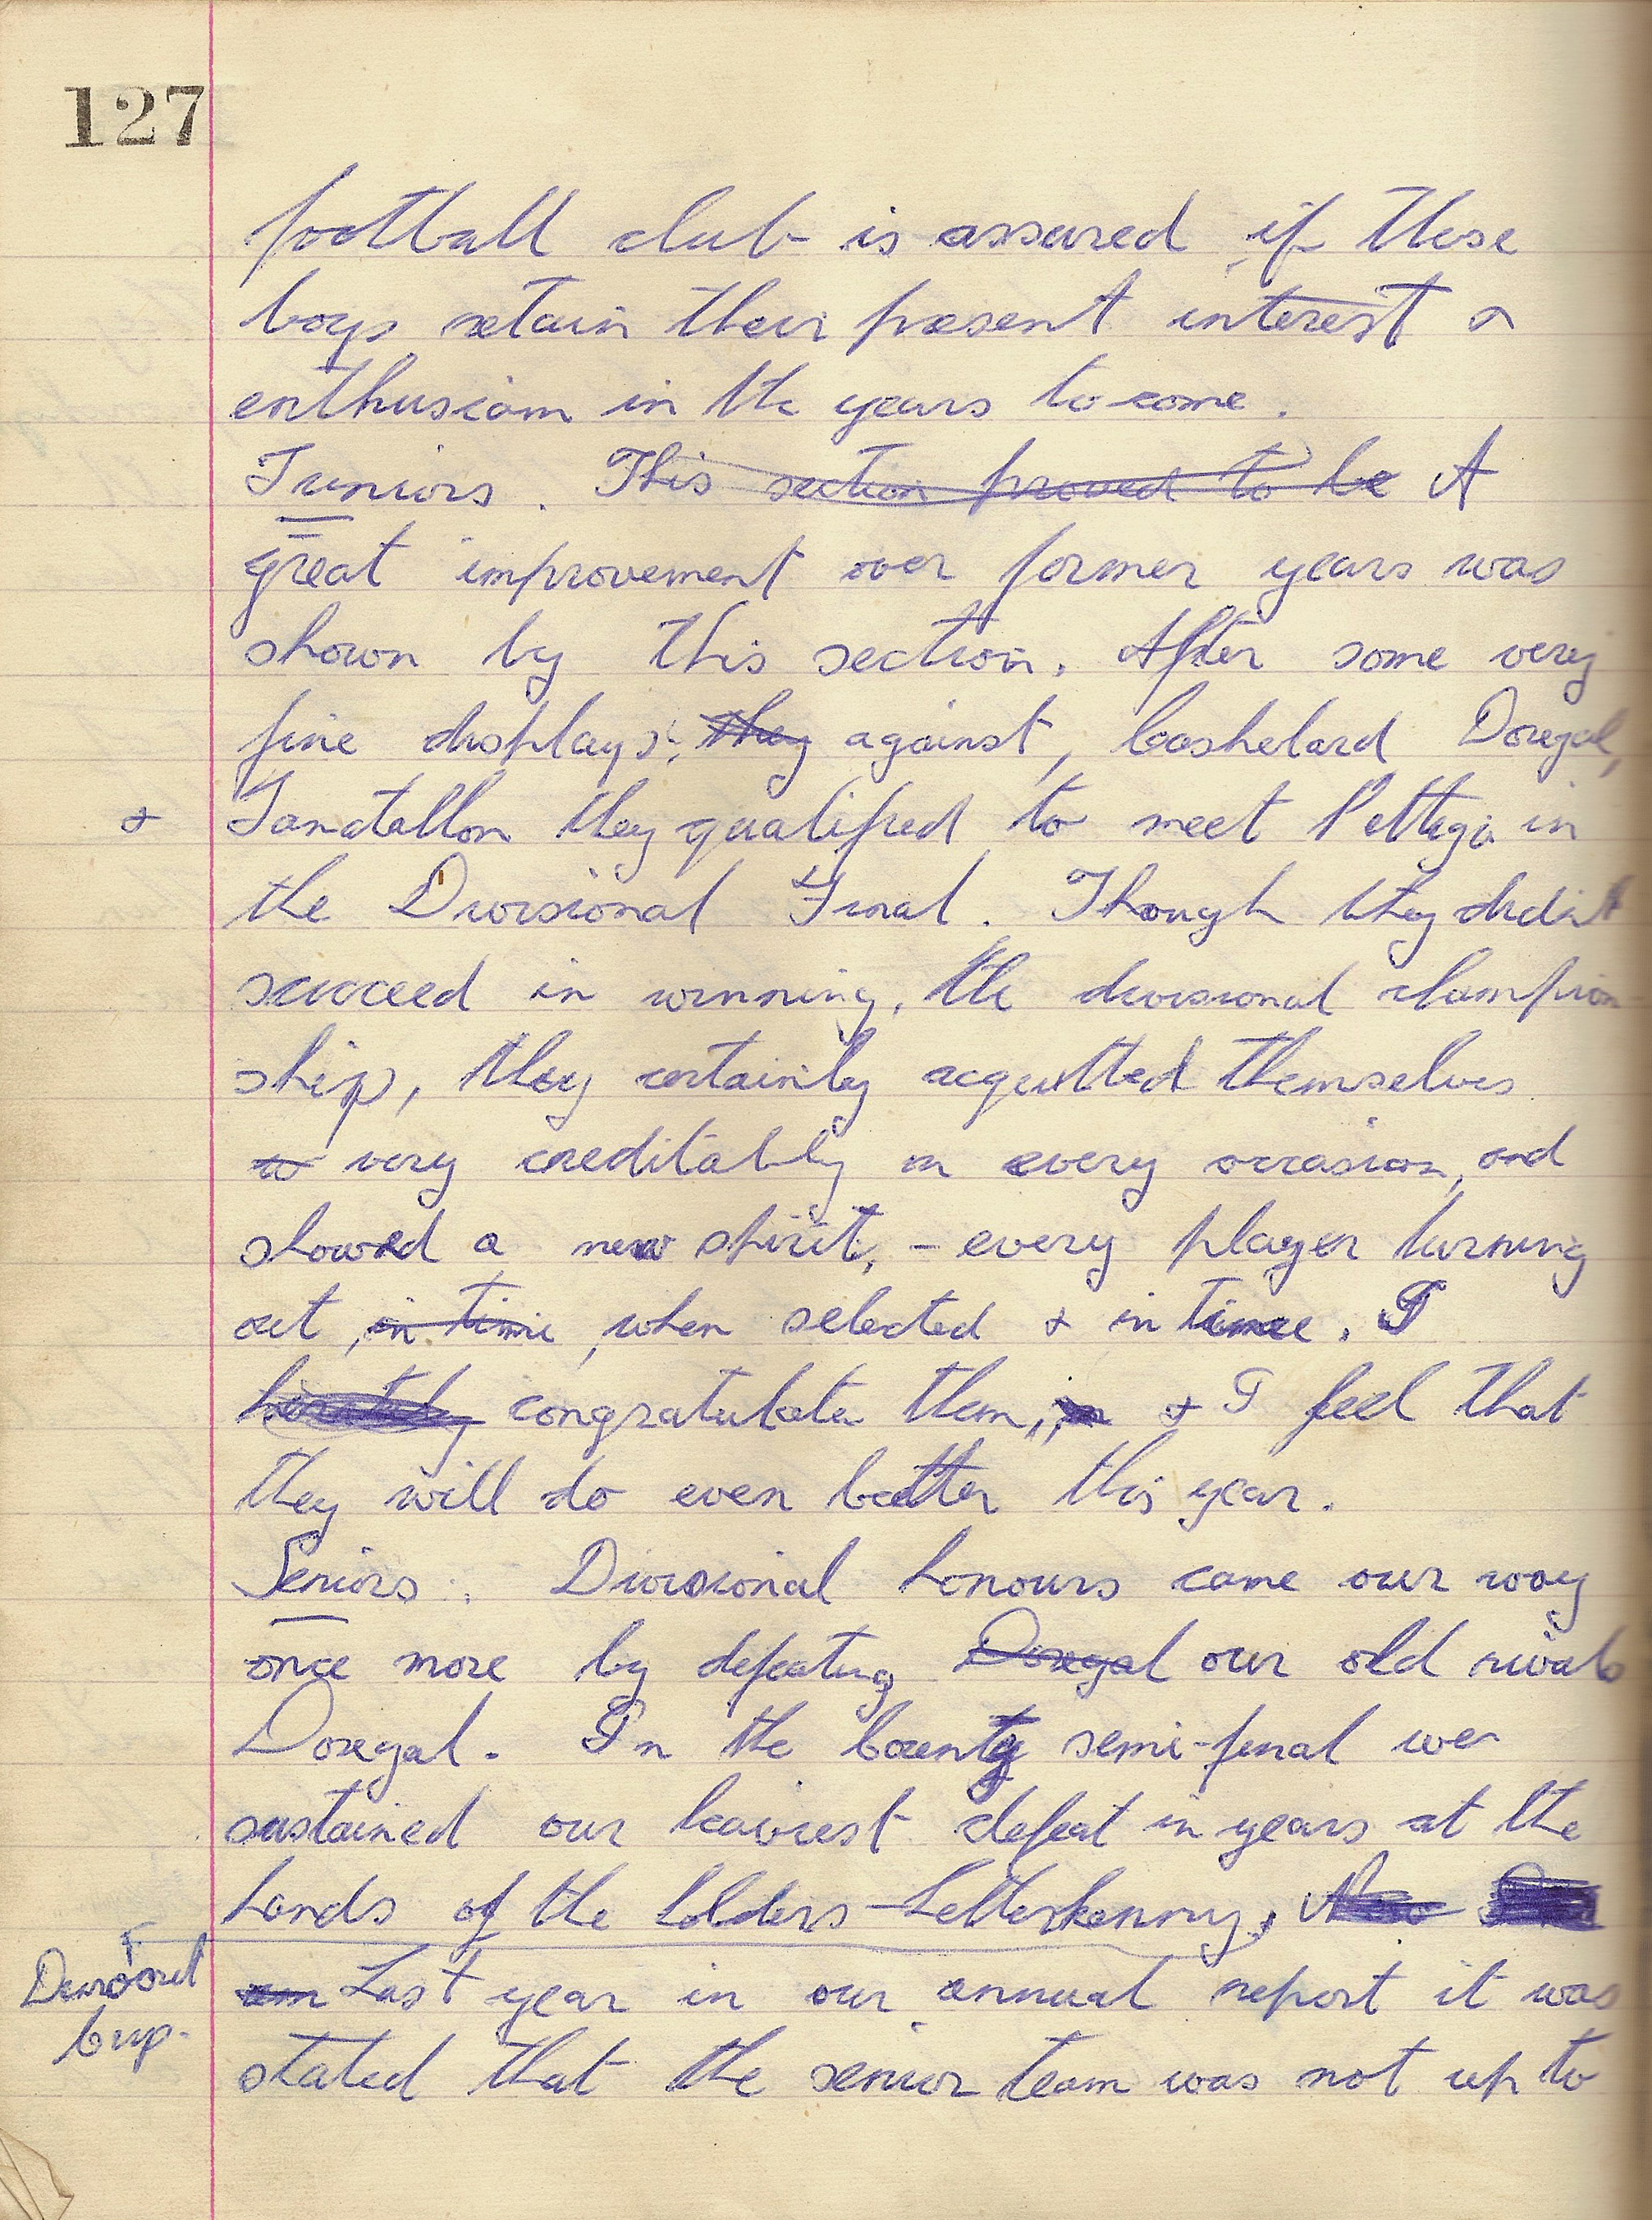 127
football club is assured if these
boys retain their present interest &
enthusiasm in the years to come.
Juniors. This section proved to be A
great improvement over former years was
shown by this section. After some very
fine displays, they against, Cashelard Donegal,
& Tanatallon they qualified to meet Pettigo in
the Divisional Final. Though they didn't
succeed in winning, the divisional champion
ship, they certainly acquitted themselves
so very creditably on every occasion, and
showed a new spirit, - every player turning
out, in time, when selected & in time. I
heartily congratulate them, in & I feel that
they will do even better this year.
Seniors. Divisional honours came our way
once more by defeating Donegal our old rivals
Donegal. In the County semi-final we
sustained our heaviest defeat in years at the
hands of the holders - Letterkenny.
Last year in our annual report it was
Cup.
stated that the senior team was not up to